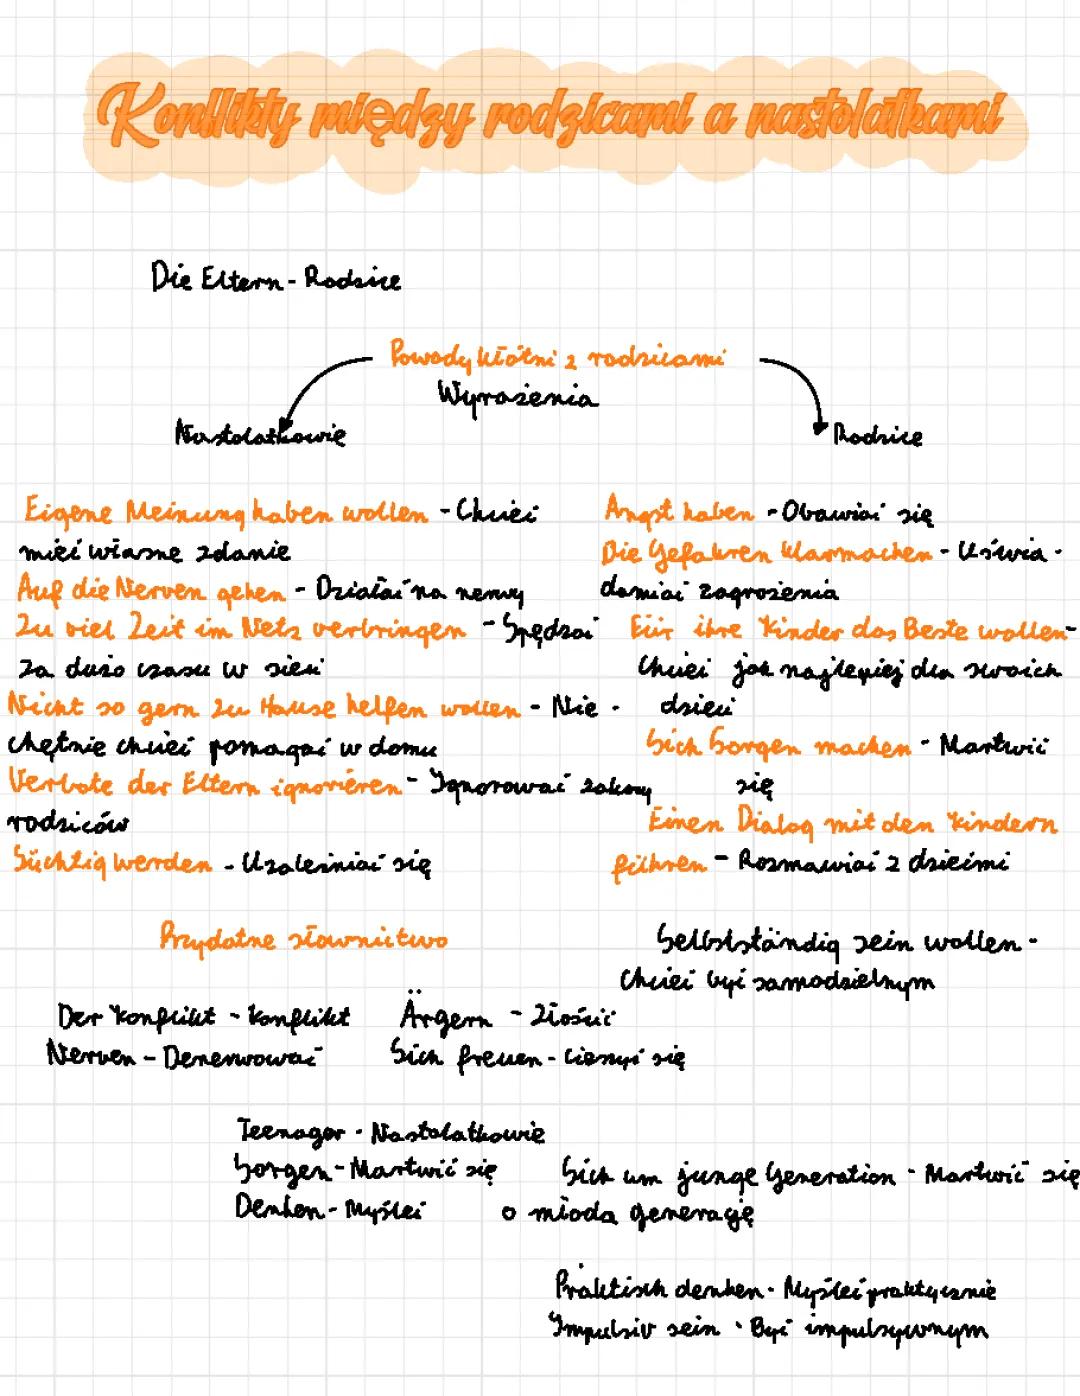 Konflikty między rodzicami a nastolatkami
Die Eltern - Rodzice
Powody kłótni z rodzicami
Wyrażenia
Nastolatkowie
Rodzice
Eigene Meinung haben wollen - Chcieć
mieć własne zdanie
Auf die Nerven gehen - Działać na nerwy
Zu viel Zeit im Netz verbringen - Spędzać
za dużo czasu w sieci
Nicht so gern zu Hause helfen wollen - Nie -
chętnie chcieć pomagać w domu
Verbote der Eltern ignorieren - Ignorować zakazy
rodziców
Süchtig werden - Uzależniać się
Angst haben - Obawiać się
Die Gefahren klarmachen - Uświa -
damiać zagrożenia
Für ihre Kinder das Beste wollen -
Chcieć jak najlepiej dla swoich
dzieci
Sich Sorgen machen - Martwić
się
Einen Dialog mit den Kindern
führen - Rozmawiać z dziećmi
Przydatne słownictwo
Selbstständig sein wollen -
Chcieć być samodzielnym
Der Konflikt - Konflikt
Ärgern - Złościć
Nerven - Denerwować
Sich freuen - Cieszyć się
Teenager - Nastolatkowie
Sorgen - Martwić się
Denken - Myśleć
Sich um junge Generation - Martwić się
o młodą generację
Praktisch denken - Myśleć praktycznie
Impulsiv sein - Być impulsywnym